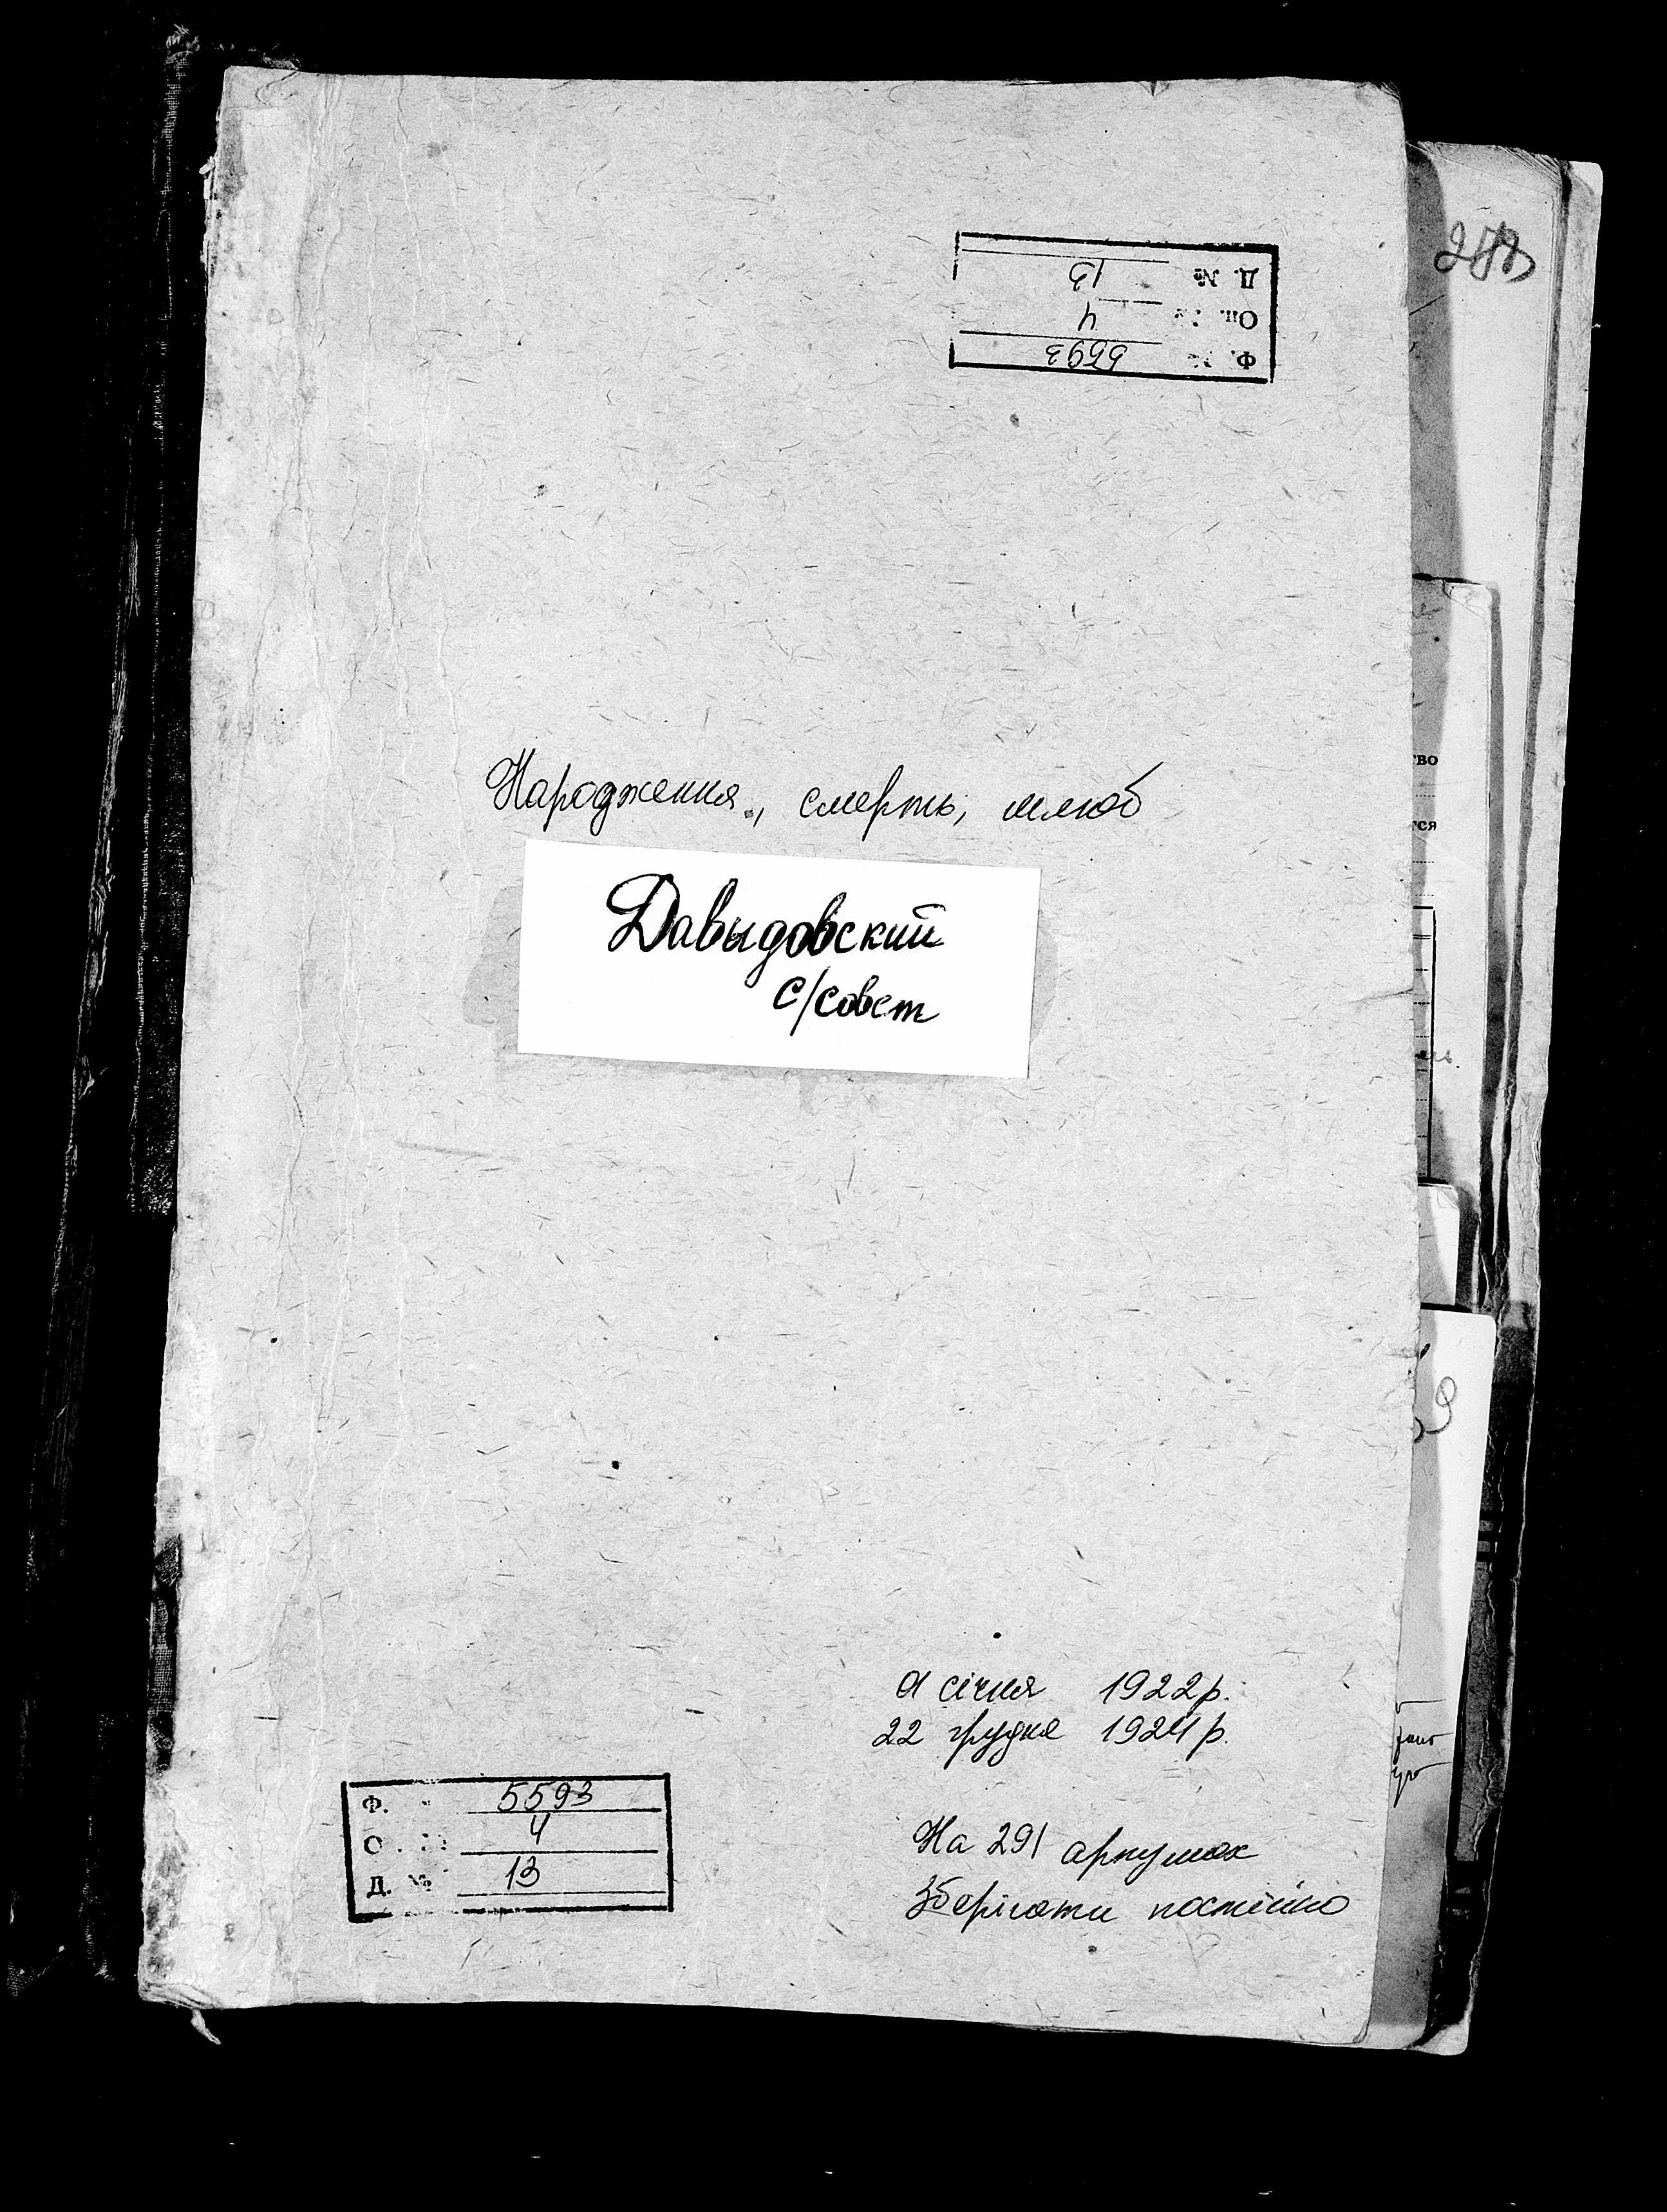 Д. № 13
Оп. № 4
Ф. № 5593
Народження, смерть, шлюб
Давыдовский
с/совет
січня 1922 р.
22 грудня 1924 р.
Ф. 5593
О. № 4
Д. № 13
На 291 аркушах
Зберігати постійно
тво
тся